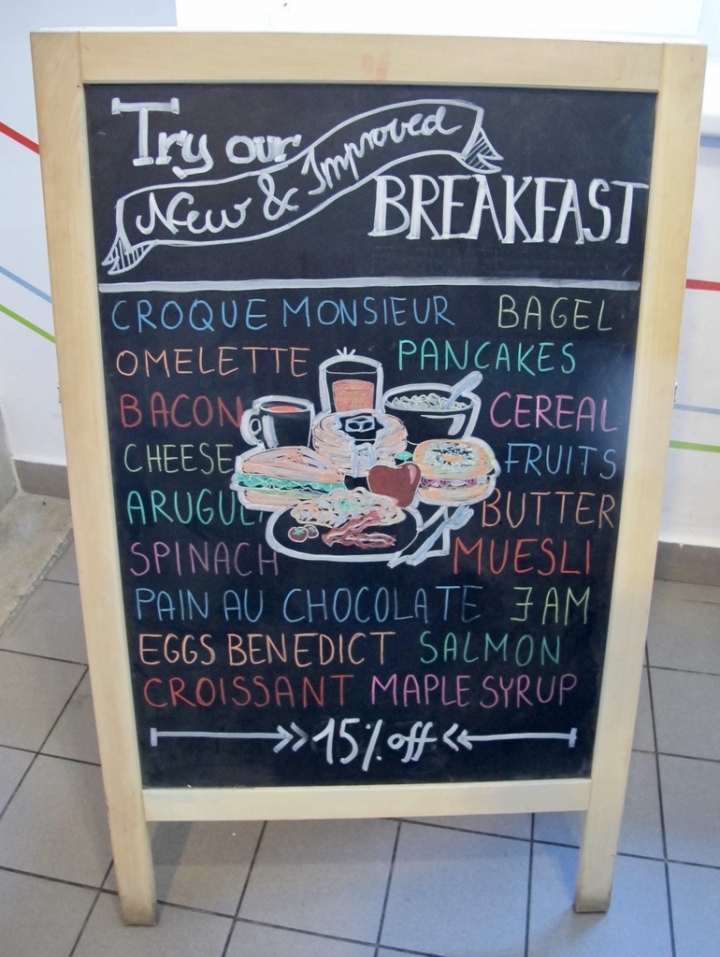 Try our
New & Improved
BREAKFAST
CROQUE MONSIEUR BAGEL
OMELETTE PANCAKES
BACON CEREAL
CHEESE FRUITS
ARUGULA BUTTER
SPINACH MUESLI
PAIN AU CHOCOLATE JAM
EGGS BENEDICT SALMON
CROISSANT MAPLE SYRUP
15% off